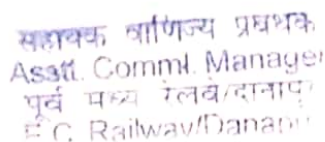 सहायक वाणिज्य प्रबंधक
Asstt. Comml. Manager
पूर्व मध्य रेलवे/दानापुर
E.C. Railway/Danapur